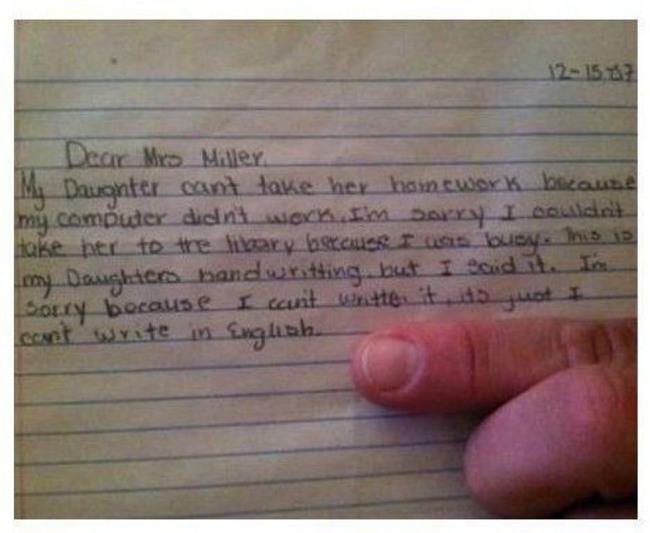 12-15-07
Dear Mrs Miller.
My Daughter can't take her homework because
my computer didn't work. I'm sorry I couldn't
take her to the libary because I was busy. This is
my Daughters handwritting but I said it. I'm
sorry because I can't writte it, its just I
can't write in English.